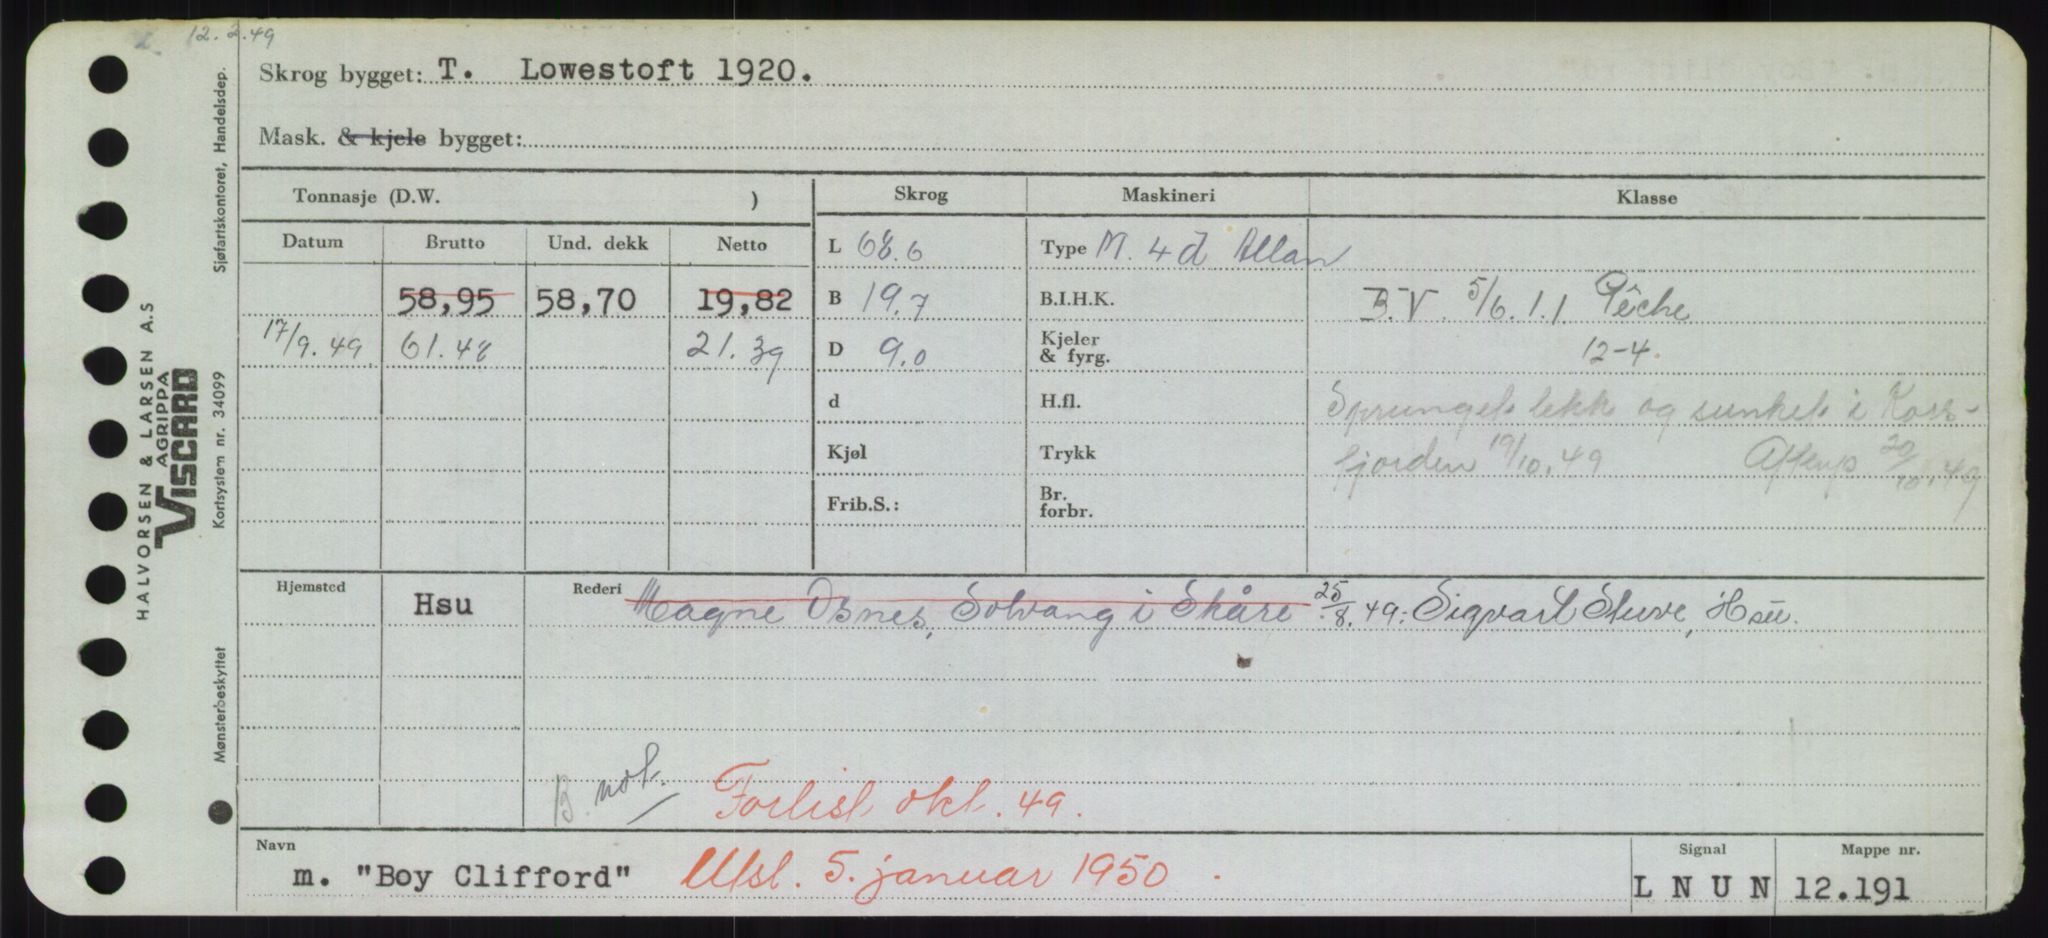 12.2.49
Skrog bygget: T. Lowestoft 1920.
Mask. & kjele bygget:
Tonnasje (D.W. )
Skrog
Maskineri
Klasse
Datum Brutto Und. dekk Netto
L 68.6
Type M. 4 d Allan
58,95 58,70 19,82
B 19.7
B.I.H.K.
B.V. 5/6. 1.1 Pêche
17/9.49 61.48 21.39
D 9.0
Kjeler
& fyrg.
12-4.
d
H.fl.
Sprunget lekk og sunket i Kors-
Kjøl
Trykk
fjorden 19/10.49 Aftenp 20/10.49
Frib.S.:
Br.
forbr.
Hjemsted Hsu
Rederi Magne Osnes, Solvang i Skåre 25/8.49: Sigvart Stuve, Hsu.
B. not.
Forlist okt. 49.
Navn
m. "Boy Clifford" Utsl. 5. januar 1950.
Signal
L N U N
Mappe nr.
12.191
HALVORSEN & LARSEN A.S
AGRIPPA
VISCARD
Sjøfartskontoret, Handelsdep.
Kortsystem nr. 34099
Mønsterbeskyttet